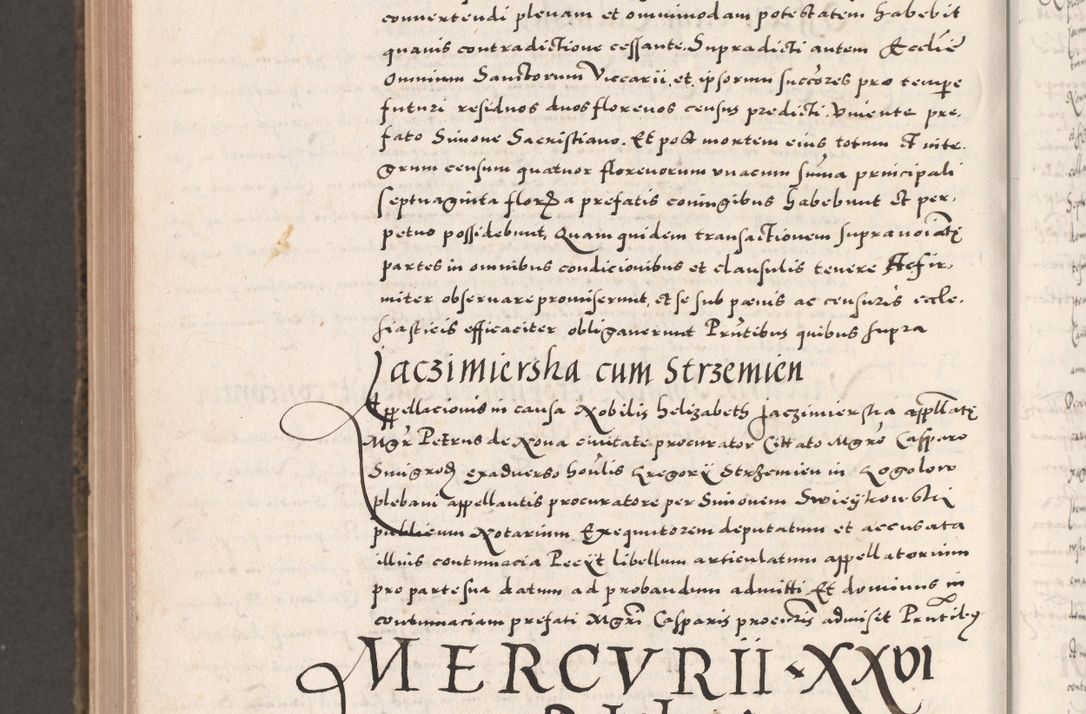 convertendi plenam et omnimodam potestatem habebit
quavis contradictione cessante. Supradicti autem Ecclie
Omnium Sanctorum Viccarii, et ipsorum succores pro tempe
futuri residuos duos florenos census predicti. Vivente pre-
fato Simone Sacristiano. Et post mortem eius totum et inte-
grum censum quatuor florenorum unacum suma principali
septuaginta flor a prefatis coniugibus habebunt et per-
petuo possidebunt, Quam quidem transactionem supra
partes in omnibus condicionibus et clausulis tenere Acfir-
miter observare promiserunt, et se sub pœnis ac censuris eccle-
siasticis efficaciter obligaverunt Prntibus quibus supra
Jaczimierska cum Strzemien
Appellacionis in causa Nobilis helizabeth Jaczimierska appllatę
Mgr Petrus de Nova civitate procurator Cittato Mgro Casparo
Smigrod exadverso honlis Gregorij Strzemien in Rogolow
plebani appellantis procuratore per Simonem Swieykowski
publicum Notarium Exequutorem deputatum et accusata
illius contumacia Pecijt libellum articulatum appellatorium
pro parte sua datum ad probandum admitti Et dominus in
contumaciam prefati Mgri Casparis procuris admisit Prntibus
MERCVRII XXVI